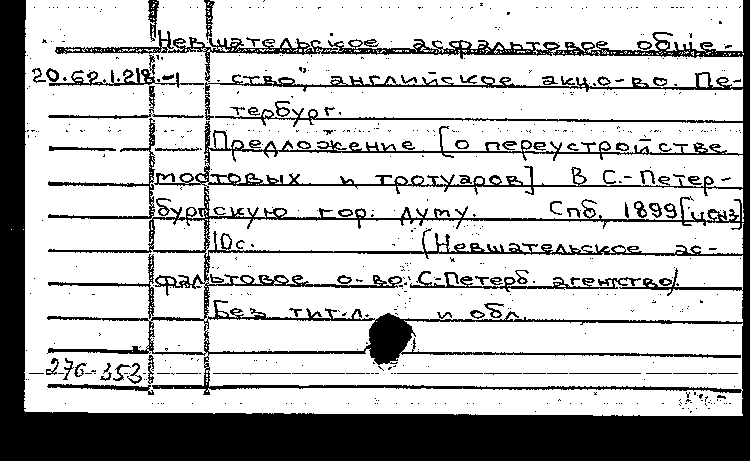 "Невшательское асфальтовое обще-
20.62.1.218.-1 ство", английское акц.о-во. Пе-
тербург.
Предложение [о переустройстве
мостовых и тротуаров] В С.-Петер-
бургскую гор. думу. Спб, 1899 [ценз]
10с. (Невшательское ас-
фальтовое о-во. С-Петерб. агентство)
Без тит.л. и обл.
276-353